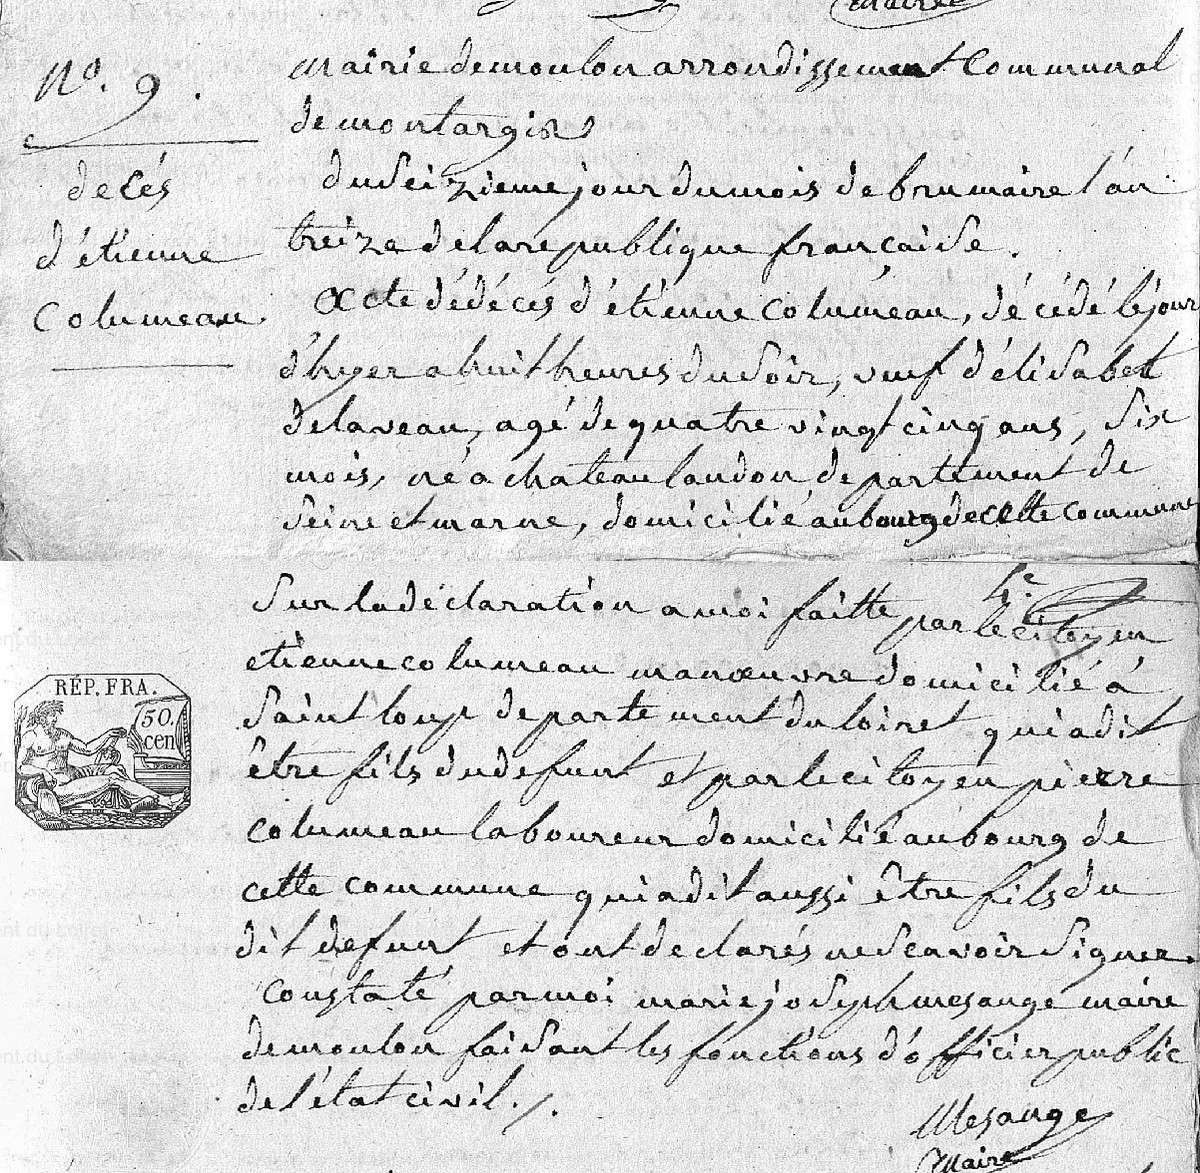 Maire
N.º 9.
decés
d'étienne
Columeau.
Mairie de moulon arrondissement Communal
de montargis
du Seizieme jour du mois de brumaire l'an
treize de la republique francaise.
Acte dédécés d'étienne Columéau, décédé léjour
d'hyer a huit heures du Soir, veuf d'élisabet
delaveau, agé de quatre vingt cinq ans, Six
mois, né a chateaulandon departement de
Seine et marne, domicilié au bourg de cette commune
Sur la déclaration a moi faitte par le citoyen
etienne columeau manœuvre domicilié à
Saint loup departement du loiret qui a dit
être fils du defunt et par le citoyen pierre
columeau laboureur domicilié au bourg de
cette commune qui a dit aussi être fils du
dit defunt et ont declarés ne Scavoir Signer.
Constaté par moi marie joseph mesange maire
de moulon faisant les fonctions d'officier public
de l'état civil./.
Mesange
Maire
RÉP. FRA.
50.
cen